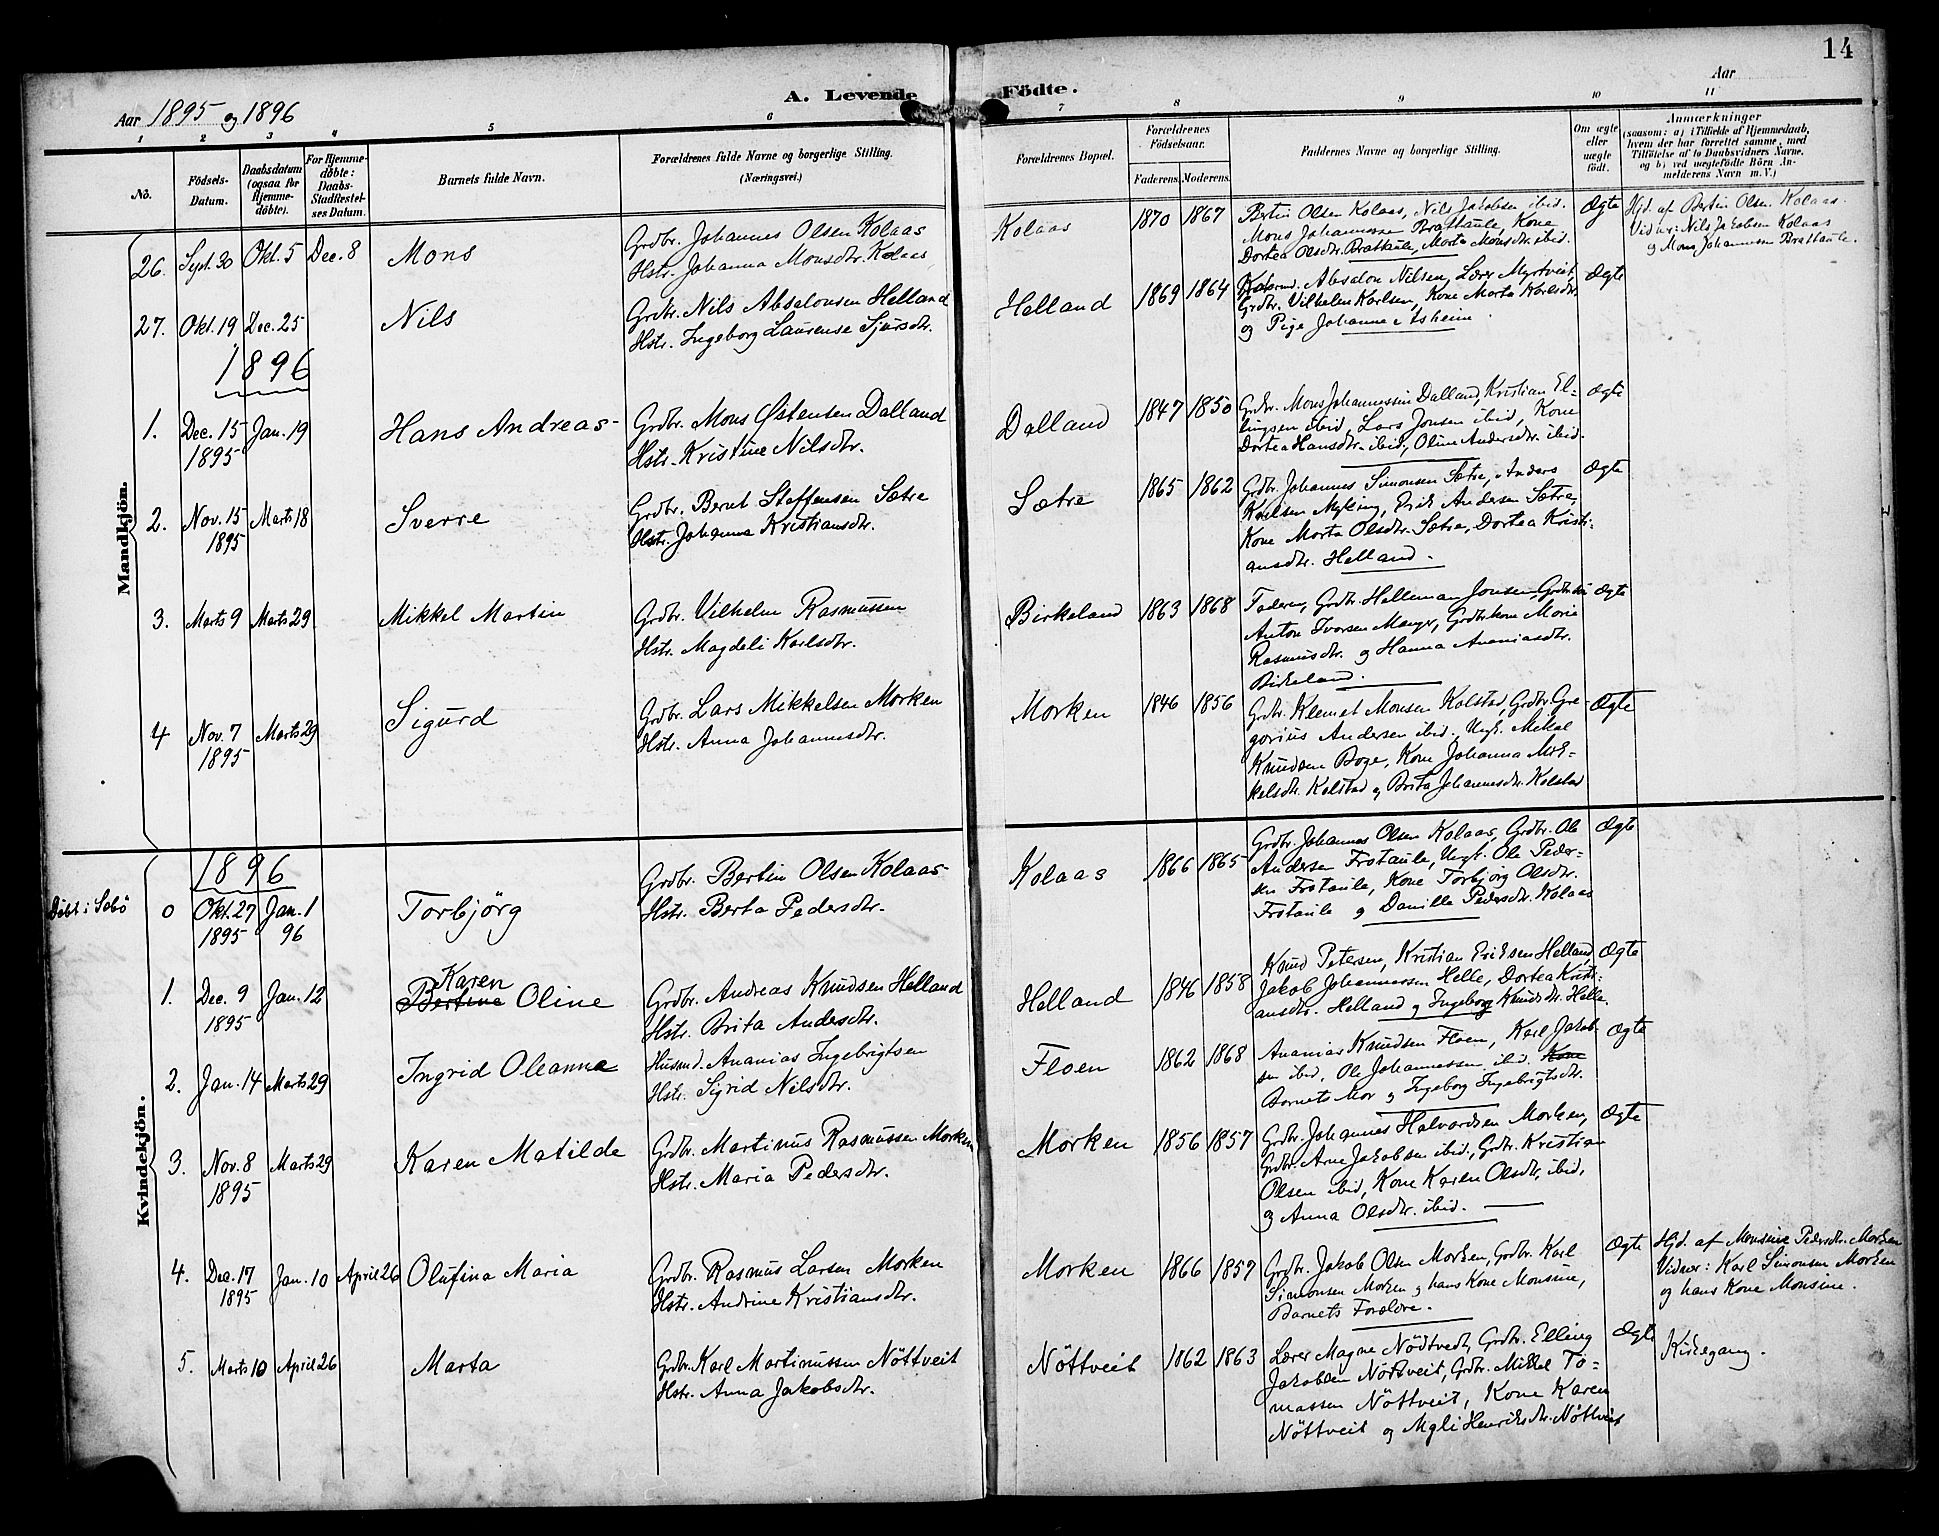 14
Aar 1895 og 1896
A. Levende Födte.
Aar
1 2 3 4 5 6 7 8 9 10 11
No.
Födsels-Datum.
Daabsdatum (ogsaa for Hjemme-døbte).
For Hjemme-døbte: Daabs-Stadfæstelses Datum.
Barnets fulde Navn.
Forældrenes fulde Navne og borgerlige Stilling.
(Næringsvei.)
Forældrenes Bopæl.
Forældrenes Födselsaar.
Faderens. Moderens.
Faddernes Navne og borgerlige Stilling.
Om ægte eller uægte födt.
Anmærkninger
(saasom: a) i Tilfælde af Hjemmedaab, hvem der har forrettet samme, med Tilföielse af to Daabsvidners Navne, og b) ved uægtefödte Börn Anmelderens Navn m. V.)
Mandkjön.
26. Sept. 30 Okt. 5 Dec. 8 Mons
Grdbr. Johannes Olsen Kolaas
Hstr. Johanna Monsdtr. Kolaas
Kolaas 1870 1867
Bertin Olsen Kolaas, Nils Jakobsen ibid.
Mons Johannessen Brattaule, Kone
Dortea Olsdtr. Brattaule, Marta Monsdtr. ibid.
Ægte
Hjd. af Bertin Olsen Kolaas.
Vidner: Nils Jakobsen Kolaas
og Mons Johannessen Brattaule.
27. Okt. 19 Dec. 25 Nils
Grdbr. Nils Absalonsen Helland
Hstr. Ingeborg Laurense Sjursdtr.
Helland 1869 1864
Absalon Nilsen, Lærer Myrtveit,
Grdbr. Vilhelm Karlsen, Kone Marta Karlsdtr.
og Pige Johanne Asheim.
Ægte
1896
1. Dec. 15 1895 Jan. 19 Hans Andreas
Grdbr. Mons Østensen Dalland
Hstr. Kristine Nilsdtr.
Dalland 1847 1850
Grdbr. Mons Johannessen Dalland, Kristian El-
lingsen ibid, Lars Jonsen ibid, Kone
Dortea Hansdtr. ibid, Oline Andersdtr. ibid.
Ægte
2. Nov. 15 1895 Marts 18 Sverre
Grdbr. Bernt Steffensen Sætre
Hstr. Johanna Kristiansdtr.
Sætre 1865 1862
Grdbr. Johannes Simonsen Sætre, Anders
Karlsen Myking, Erik Andersen Sætre,
Kone Marta Olsdtr. Sætre, Dortea Kristi-
ansdtr. Helland.
Ægte
3. Marts 9 Marts 29 Mikkel Martin
Grdbr. Vilhelm Rasmussen
Hstr. Magdeli Karlsdtr.
Birkeland 1863 1868
Faderen, Grdbr. Helleman Jonsen,
Anton Iversen Manger, Grdbrkone Maria
Rasmusdtr. og Hanna Ananiasdtr.
Birkeland.
Ægte
4 Nov. 7 1895 Marts 29 Sigurd
Grdbr. Lars Mikkelsen Morken
Hstr. Anna Johannesdtr.
Morken 1846 1856
Grdbr. Klemet Monsen Kolstad, Grdbr. Gre-
gorius Andersen ibid. Ungk. Mikal
Knudsen Boge, Kone Johanna Mik-
kelsdtr. Kolstad og Brita Johannesdtr. Kolstad
Ægte
Kvindekjön.
1896
Döbt i Sebö
0 Okt. 27 1895 Jan. 1 96 Torbjörg
Grdbr. Bertin Olsen Kolaas
Hstr. Berta Pedersdtr.
Kolaas 1866 1865
Grdbr. Johannes Olsen Kolaas, Grdbr. Ole
Andersen Frotaule, Ungk. Ole Peder-
sen Frotaule, Kone Torbjörg Olsdtr.
Frotaule og Danille Pedersdtr. Kolaas
Ægte
1. Dec. 9 1895 Jan. 12 Karen
Bertine Oline
Grdbr. Andreas Knudsen Helland
Hstr. Brita Andersdtr.
Helland 1846 1858
Knud Petersen, Kristian Eriksen Helland,
Jakob Johannessen Helle, Dortea Kristi-
ansdtr. Helland og Ingeborg Knudsdtr. Helle.
Ægte
2. Jan. 14 Marts 29 Ingrid Oleanna
Husmd. Ananias Ingebrigtsen
Hstr. Sigrid Nilsdtr.
Floen 1862 1868
Ananias Knudsen Floen, Karl Jakob-
sen ibid, Ole Johannessen ibid. Kone
Barnets Mor og Ingeborg Ingebrigtsdtr.
Ægte
3. Nov. 8 1895 Marts 29 Karen Matilde
Grdbr. Martinus Rasmussen Morken
Hstr. Maria Pedersdtr.
Morken 1856 1857
Grdbr. Johannes Halvordsen Morken,
Grdbr. Arne Jakobsen ibid., Grdbr. Kristian
Olsen ibid, Kone Karen Olsdtr. ibid,
og Anna Olsdtr. ibid.
Ægte
4. Dec. 17 1895 Jan. 10 April 26 Olufina Maria
Grdbr. Rasmus Larsen Morken
Hstr. Andrine Kristiansdtr.
Morken 1866 1857
Grdbr. Jakob Olsen Morken, Grdbr. Karl
Simonsen Morken og hans Kone Monsine,
Barnets Forældre.
Ægte
Hjd. af Monsine Pedersdtr. Morken
Vidner: Karl Simonsen Morken
og hans Kone Monsine.
5. Marts 10 April 26 Marta
Grdbr. Karl Martinussen Nöttveit
Hstr. Anna Jakobsdtr.
Nöttveit 1862 1863
Lærer Magne Nödtvedt, Grdbr. Elling
Jakobsen Nöttveit, Grdbr. Mikkel To-
massen Nöttveit, Kone Karen
Nöttveit og Mgli Henriksdtr. Nöttveit
Ægte
Kirkegang.